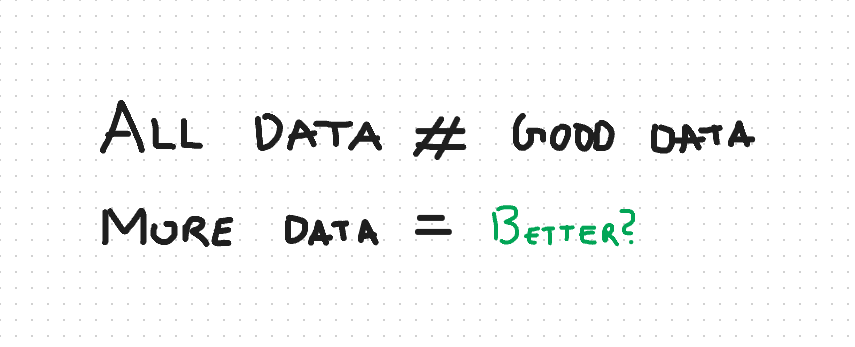 ALL DATA ≠ GOOD DATA
MORE DATA = BETTER?